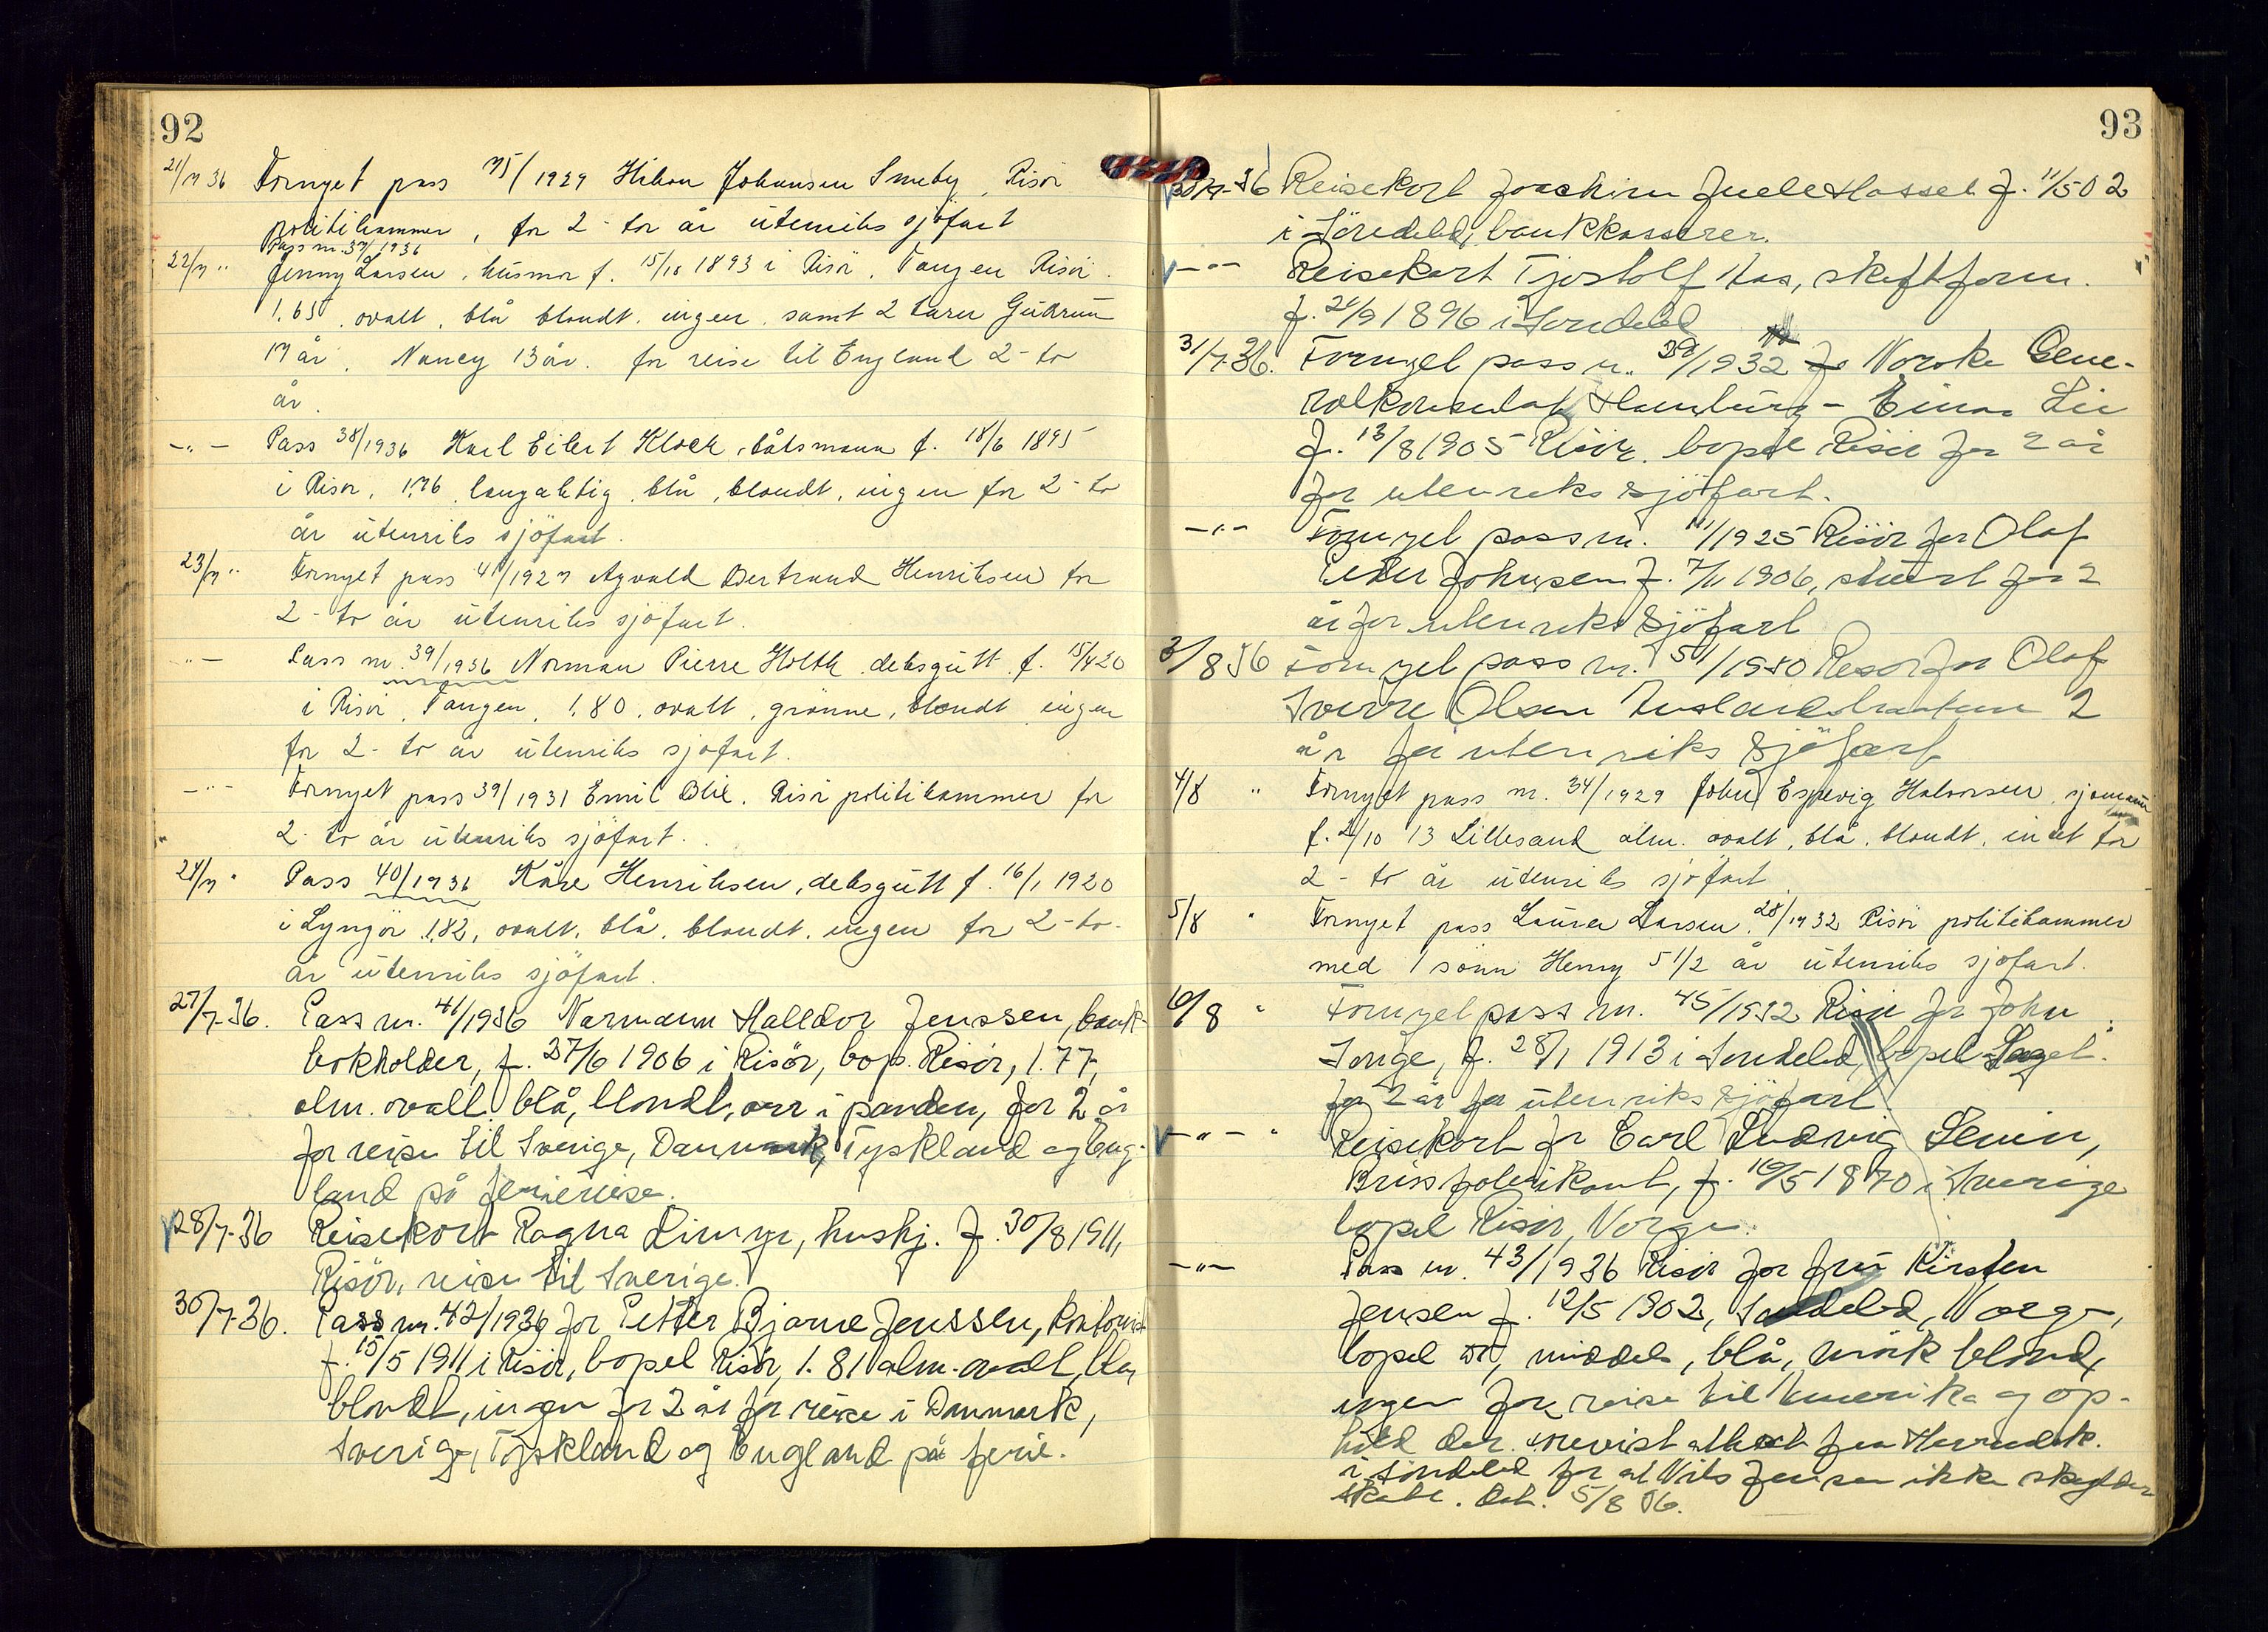 92
21/7 36 Fornyet pass 75/1929 Håkon Johansen Smeby, Risör
politikammer, for 2-to år utenriks sjöfart
Pass nr. 37/1936
22/7 " Jenny Larsen, husmor f. 15/10 1893 i Risör, Tangen Risör.
1.65, ovalt, blå blondt, ingen, samt 2 barn Gudrun
17 år, Nancy 13 år. for reise til England 2-to
år.
-"- Pass 38/1936 Karl Eilert Klock, båtsmann f. 18/6 1895
i Risör, 1.76, langaktig, blå, blondt, ingen for 2-to
år utenriks sjöfart.
23/7 " Fornyet pass 41/1927 Agvald Bertrand Henriksen for
2-to år utenriks sjöfart.
"- Pass nr. 39/1936 Norman Pierre Holth, deksgutt f. 15/4 20
i Risör, Tangen, 1.80, ovalt, grönne, blondt ingen
for 2-to år utenriks sjöfart.
-"- Fornyet pass 39/1931 Emil Blie. Risör politikammer for
2-to år utenriks sjöfart.
24/7 " Pass 40/1936 Kåre Henriksen, deksgutt f. 16/1 1920
i Lyngör 1.82, ovalt, blå, blondt, ingen for 2-to-
år utenriks sjöfart.
27/7-36. Pass nr. 41/1936 Normann Halldor Jenssen, bank-
bokholder, f. 27/6 1906 i Risör, bop. Risör, 1.77,
alm. ovalt blå, blondt, arr i panden, for 2 år
for reise til Sverige, Danmark, Tyskland og Eng-
land på feriereise.
28/7-36 Reisekort Ragna Limyr, hushj. f. 30/8 1911,
Risör, reise til Sverige.
30/7-36. Pass nr. 42/1936 for Petter Bjarne Jenssen, kontorist
f. 15/5 1911 i Risör, bopel Risör, 1.81 alm. ovalt, blå,
blondt, ingen for 2 år for reise i Danmark,
Sverige, Tyskland og England på ferie.
93
36 Reisekort Joachim Juell Hassel f. 11/5 02
i Söndeled, bankkasserer.
-"- Reisekort Tjostolf Aas, skiftform.
f. 24/9 1896 i Söndeled
31/7-36. Fornyet pass nr. 39/1932 Norske Gene-
ralkonsulat Hamburg - Einar Lie
f. 13/8 1905 Risör. bopel Risör for 2 år
for utenriks sjöfart.
-"- Fornyet pass nr. 11/1925 Risör for Olaf
Peder Johnsen f. 7/11 1906, stuert for 2
år for utenriks sjöfart
3/8 36 Fornyet pass nr. 51/1930 Risör for Olaf
Sverre Olsen 2
år for utenriks sjöfart
4/8 " Fornyet pass nr. 34/1929 John Espevig Halvorsen, sjömann
f. 2/10 13 Lillesand alm. ovalt, blå, blondt, intet for
2-to år utenriks sjöfart.
5/8 " Fornyet pass Laura Larsen, 28/1932 Risör politikammer
med 1 sönn Henry 5 1/2 år utenriks sjöfart.
6/8 " Fornyet pass nr. 45/1932 Risör for John
Songe, f. 28/1 1913 i Söndeled, bopel
for 2 år for utenriks sjöfart.
-"- " Reisekort for Carl Ludvig
Brusfabrikant, f. 16/5 1870 i Sverige
bopel Risör, Norge.
-"- Pass nr. 43/1936 Risör for fru Kirsten
Jensen f. 12/5 1902, Söndeled, Norge,
bopel middels, blå, mörk blond,
ingen for reise til Amerika og op-
hold der. Forevist attest fra Herredsk.
i Söndeled for at Nils Jensen ikke skylder
skatt. Dat. 5/8 36.